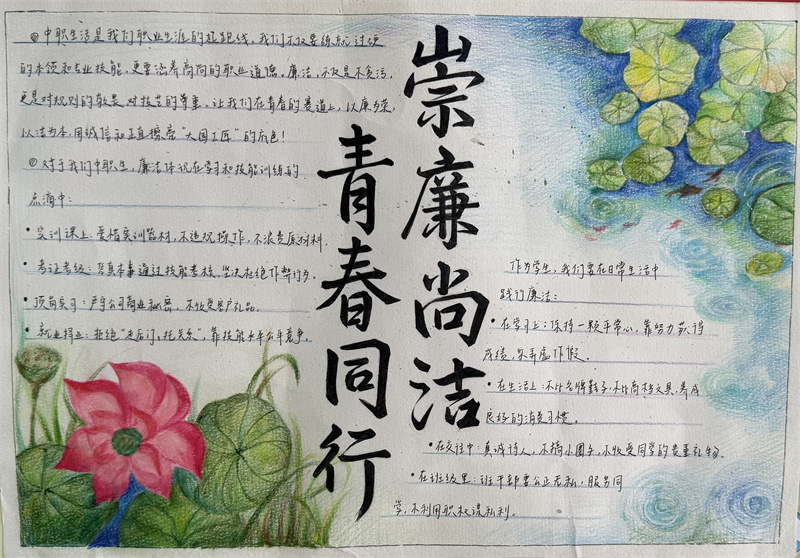 崇廉尚洁
青春同行
◎ 中职生活是我们职业生涯的起跑线，我们不仅要练就过硬
的本领和专业技能，更要涵养高尚的职业道德。廉洁，不仅是不贪污，
更是对规则的敬畏、对技艺的尊重。让我们在青春的赛道上，以廉为荣，
以洁为本，用诚信和正直擦亮“大国工匠”的底色！
◎ 对于我们中职生，廉洁体现在学习和技能训练的
点滴中：
· 实训课上：爱惜实训器材，不违规操作，不浪费原材料.
· 考证考级：凭真本事通过技能考核，坚决杜绝作弊行为。
· 顶岗实习：严守公司商业秘密，不收受客户礼品。
· 就业择业：拒绝“走后门，托关系”，靠技能水平公平竞争。
作为学生，我们要在日常生活中
践行廉洁：
· 在学习上：保持一颗平常心，靠努力获得
成绩，不弄虚作假。
· 在生活上：不比名牌鞋子，不比高档文具，养成
良好的消费习惯。
· 在交往中：真诚待人，不搞小团子，不收受同学的贵重礼物.
· 在班级里：班干部要公正无私，服务同
学，不利用职权谋私利。